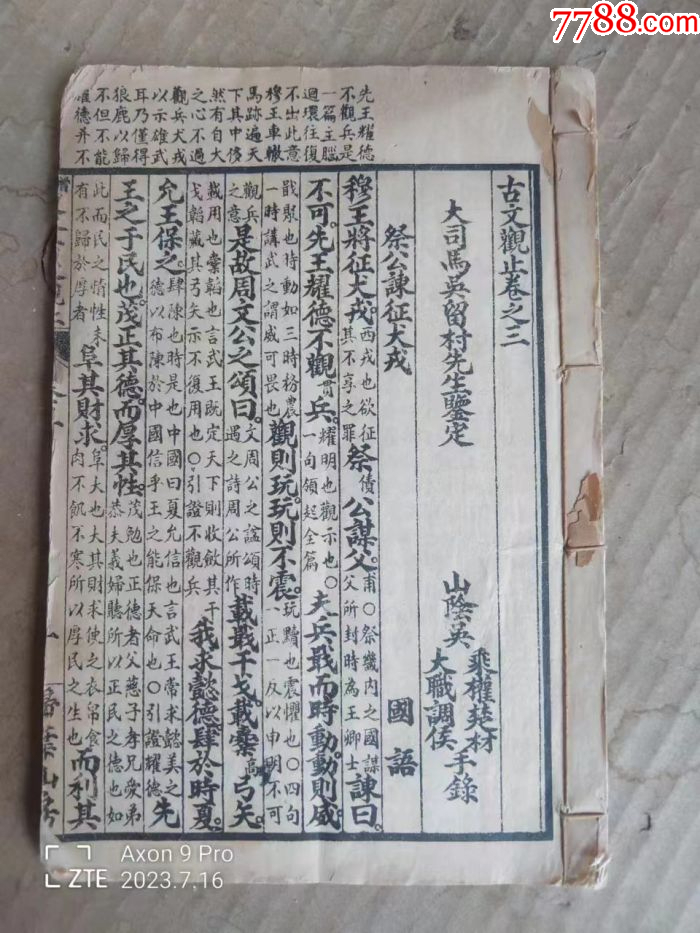 7788.com
先王耀德
不觀兵是
一篇主腦
迴環往復
不出此意
穆王車轍
馬跡遍天
下其中侈
然有自大
之心不過
觀兵犬戎
以示雄武
耳乃僅得
狼鹿以歸
不但不能
耀德并不
古文觀止卷之三
大司馬吳留村先生鑒定
山陰吳 乘權楚材 大職調侯 手錄
祭公諫征犬戎 國語
穆王將征犬戎。西戎也欲征其不享之罪 祭債公謀父。甫〇祭畿內之國謀父所封時為王卿士 諫曰。
不可。先王耀德不觀貫兵。耀明也觀示也〇一句領起全篇 夫兵戢而時動。動則威。
戢聚也時動如三時務農一時講武之謂威可畏也 觀則玩。玩則不震。玩黷也震懼也〇四句一正一反以申明不可
觀兵之意 是故周文公之頌曰。文周公之諡頌時遇之詩周公所作 載戢干戈。載櫜高弓矢。
載用也櫜韜也言武王既定天下則收斂其干戈韜藏其弓矢示不復用也〇引證不觀兵 我求懿德。肆於時夏。
允王保之。肆陳也時是也中國曰夏允信也言武王常求懿美之德以布陳於中國信乎王之能保天命也〇引證耀德 先
王之于民也。茂正其德。而厚其性。茂勉也正德者父慈子孝兄愛弟恭夫義婦聽所以正民之德也如
此而民之情性未有不歸於厚者 阜其財求。阜大也大其財求使之衣帛食肉不飢不寒所以厚民之生也 而利其
Axon 9 Pro
ZTE 2023.7.16